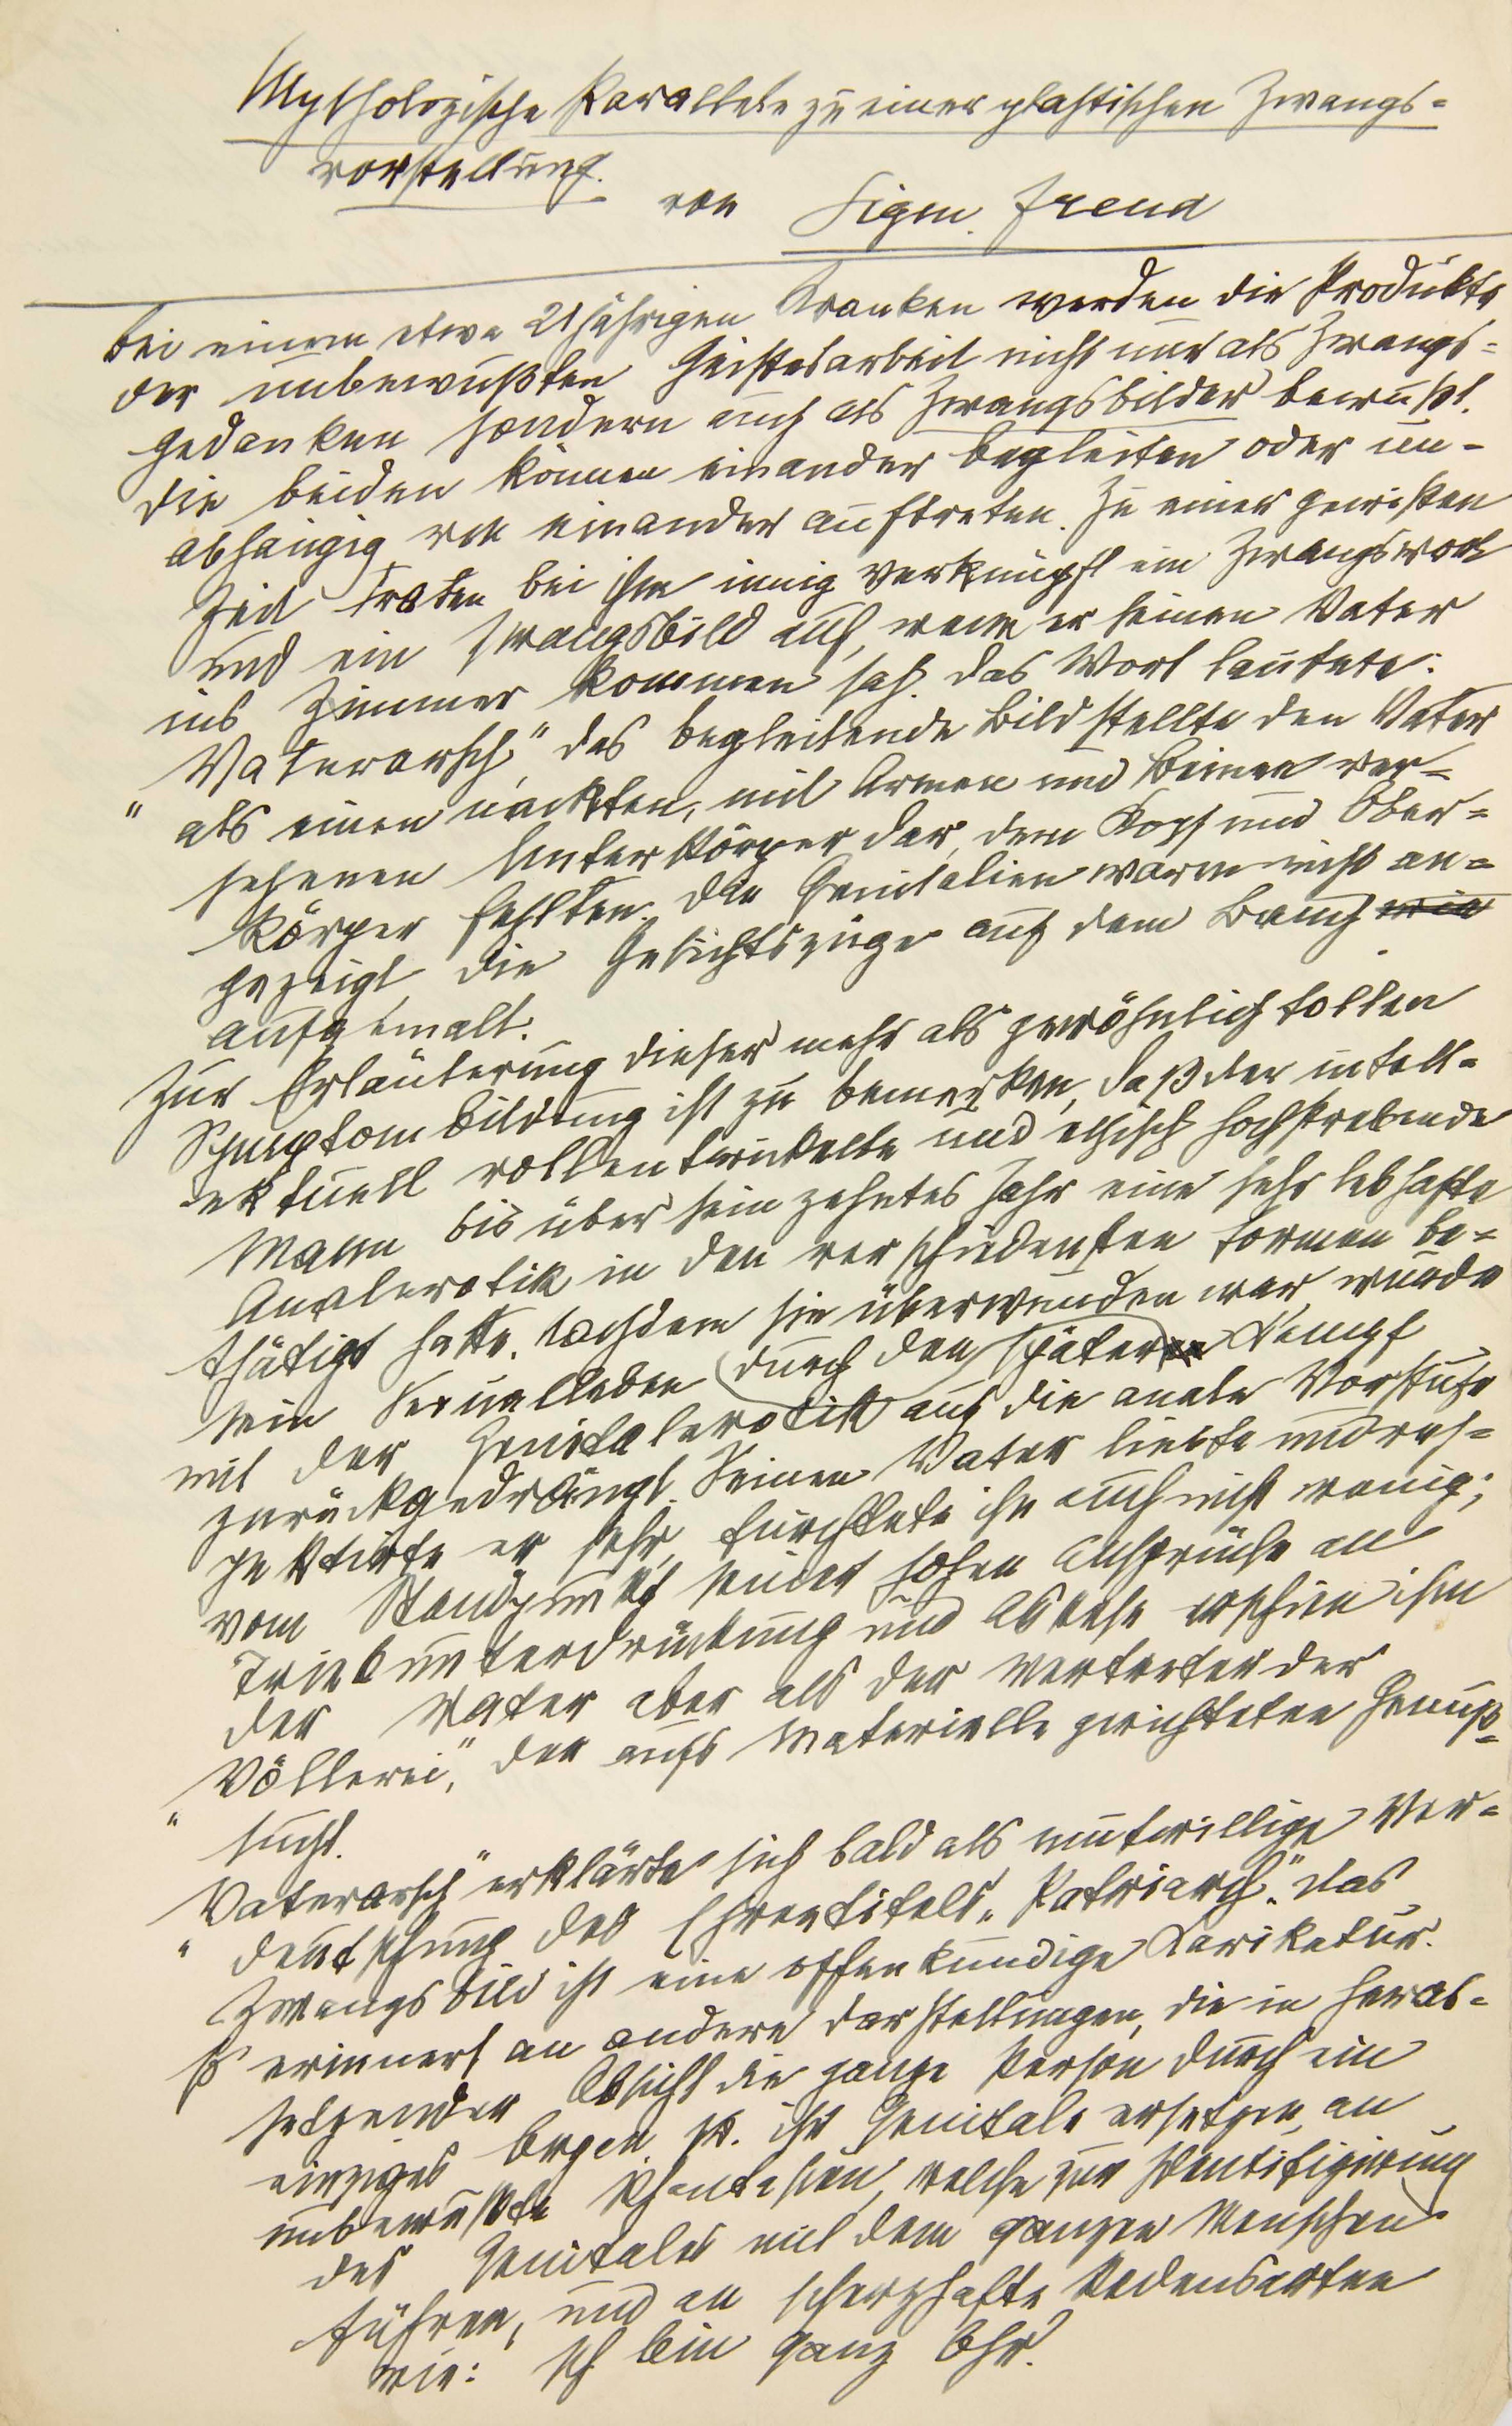 Mythologische Parallele zu einer plastischen Zwangs=
vorstellung.
von Sigm. Freud
Bei einem etwa 21jährigen Kranken werden die Produkte
der unbewußten Geistesarbeit nicht nur als Zwangs=
gedanken sondern auch als Zwangsbilder bewußt.
Die beiden können einander begleiten oder un-
abhängig von einander auftreten. Zu einer gewißen
Zeit traten bei ihm innig verknüpft ein Zwangswort
und ein Zwangsbild auf, wenn er seinen Vater
ins Zimmer kommen sah. Das Wort lautete:
„Vaterarsch“, das begleitende Bild stellte den Vater
als einen nackten, mit Armen und Beinen ver=
sehenen Unterkörper dar, dem Kopf und Ober=
körper fehlten. Die Genitalien waren nicht an=
gezeigt, die Gesichtszüge auf dem Bauch wie
aufgemalt.
Zur Erläuterung dieser mehr als gewöhnlich tollen
Symptombildung ist zu bemerken, daß der intell-
ektuell vollentwickelte und ethisch hochstrebende
Mann bis über sein zehntes Jahr eine sehr lebhafte
Analerotik in den verschiedensten Formen be=
thätigt hatte. Nachdem sie überwunden war, wurde
sein Sexualleben durch den späteren Kampf
mit der Genitalerotik auf die anale Vorstufe
zurückgedrängt. Seinen Vater liebte und res=
pektirte er sehr, fürchtete ihn auch nicht wenig;
vom Standpunkt seiner hohen Ansprüche an
Triebunterdrückung und Askese erschien ihm
der Vater aber als der Vertreter der
„Völlerei“, der aufs Materielle gerichteten Genuß=
sucht.
„Vaterarsch“ erklärte sich bald als mutwillige Ver=
deutschung des Ehrentitels „Patriarch“. Das
Zwangsbild ist eine offenkundige Karikatur.
Es erinnert an andere Darstellungen, die in herab=
setzender Absicht die ganze Person durch ein
einziges Organ, z. B. ihr Genitale ersetzen, an
unbewußte Phantasien, welche zur Identifizirung
des Genitales mit dem ganzen Menschen
führen, und an scherzhafte Redensarten
wie: Ich bin ganz Ohr.